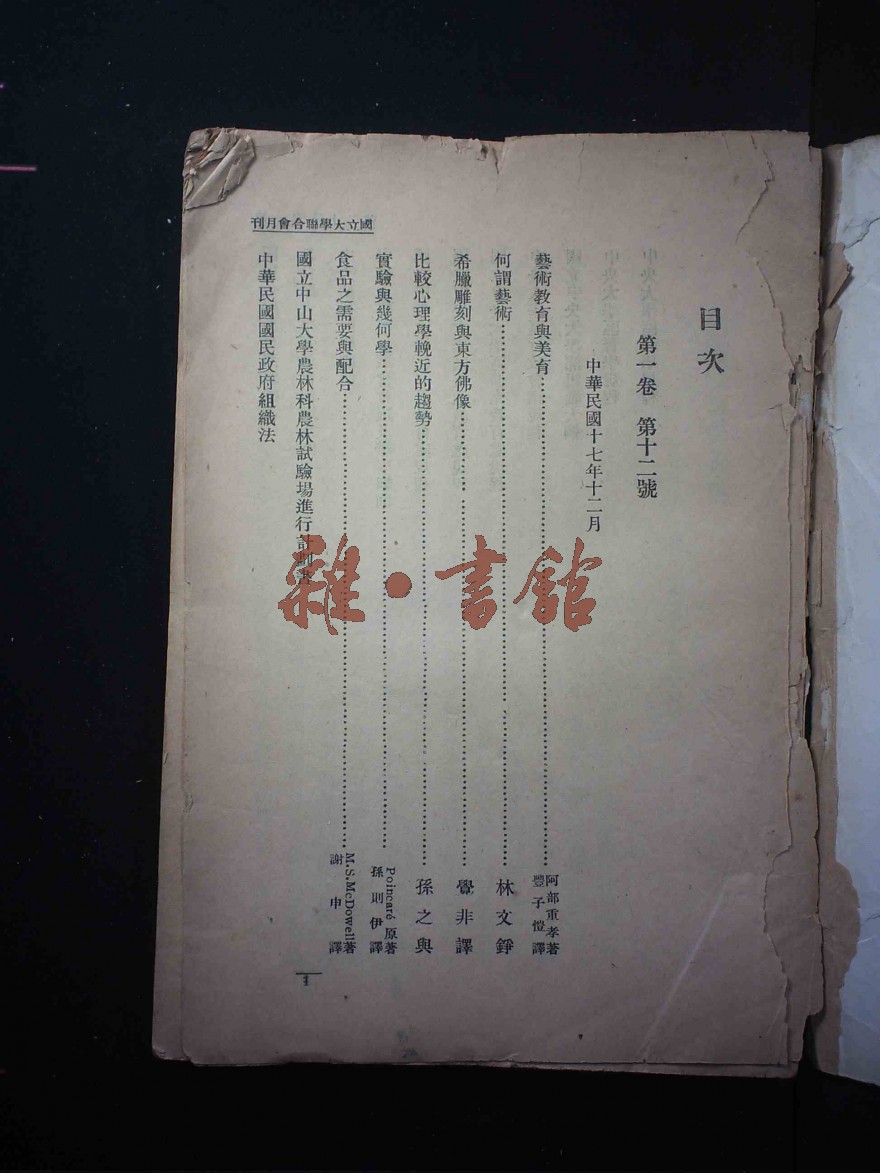 目次
第一卷 第十二號
中華民國十七年十二月
藝術教育與美育
阿部重孝著
豐子愷譯
何謂藝術
林文錚
希臘雕刻與東方佛像
覺非譯
比較心理學輓近的趨勢
孫之與
實驗與幾何學
Poincaré原著
孫則伊譯
食品之需要與配合
M.S.McDowell著
謝申譯
國立中山大學農林科農林試驗場進行計劃書
中華民國國民政府組織法
國立大學聯合會月刊
1
雜·書館